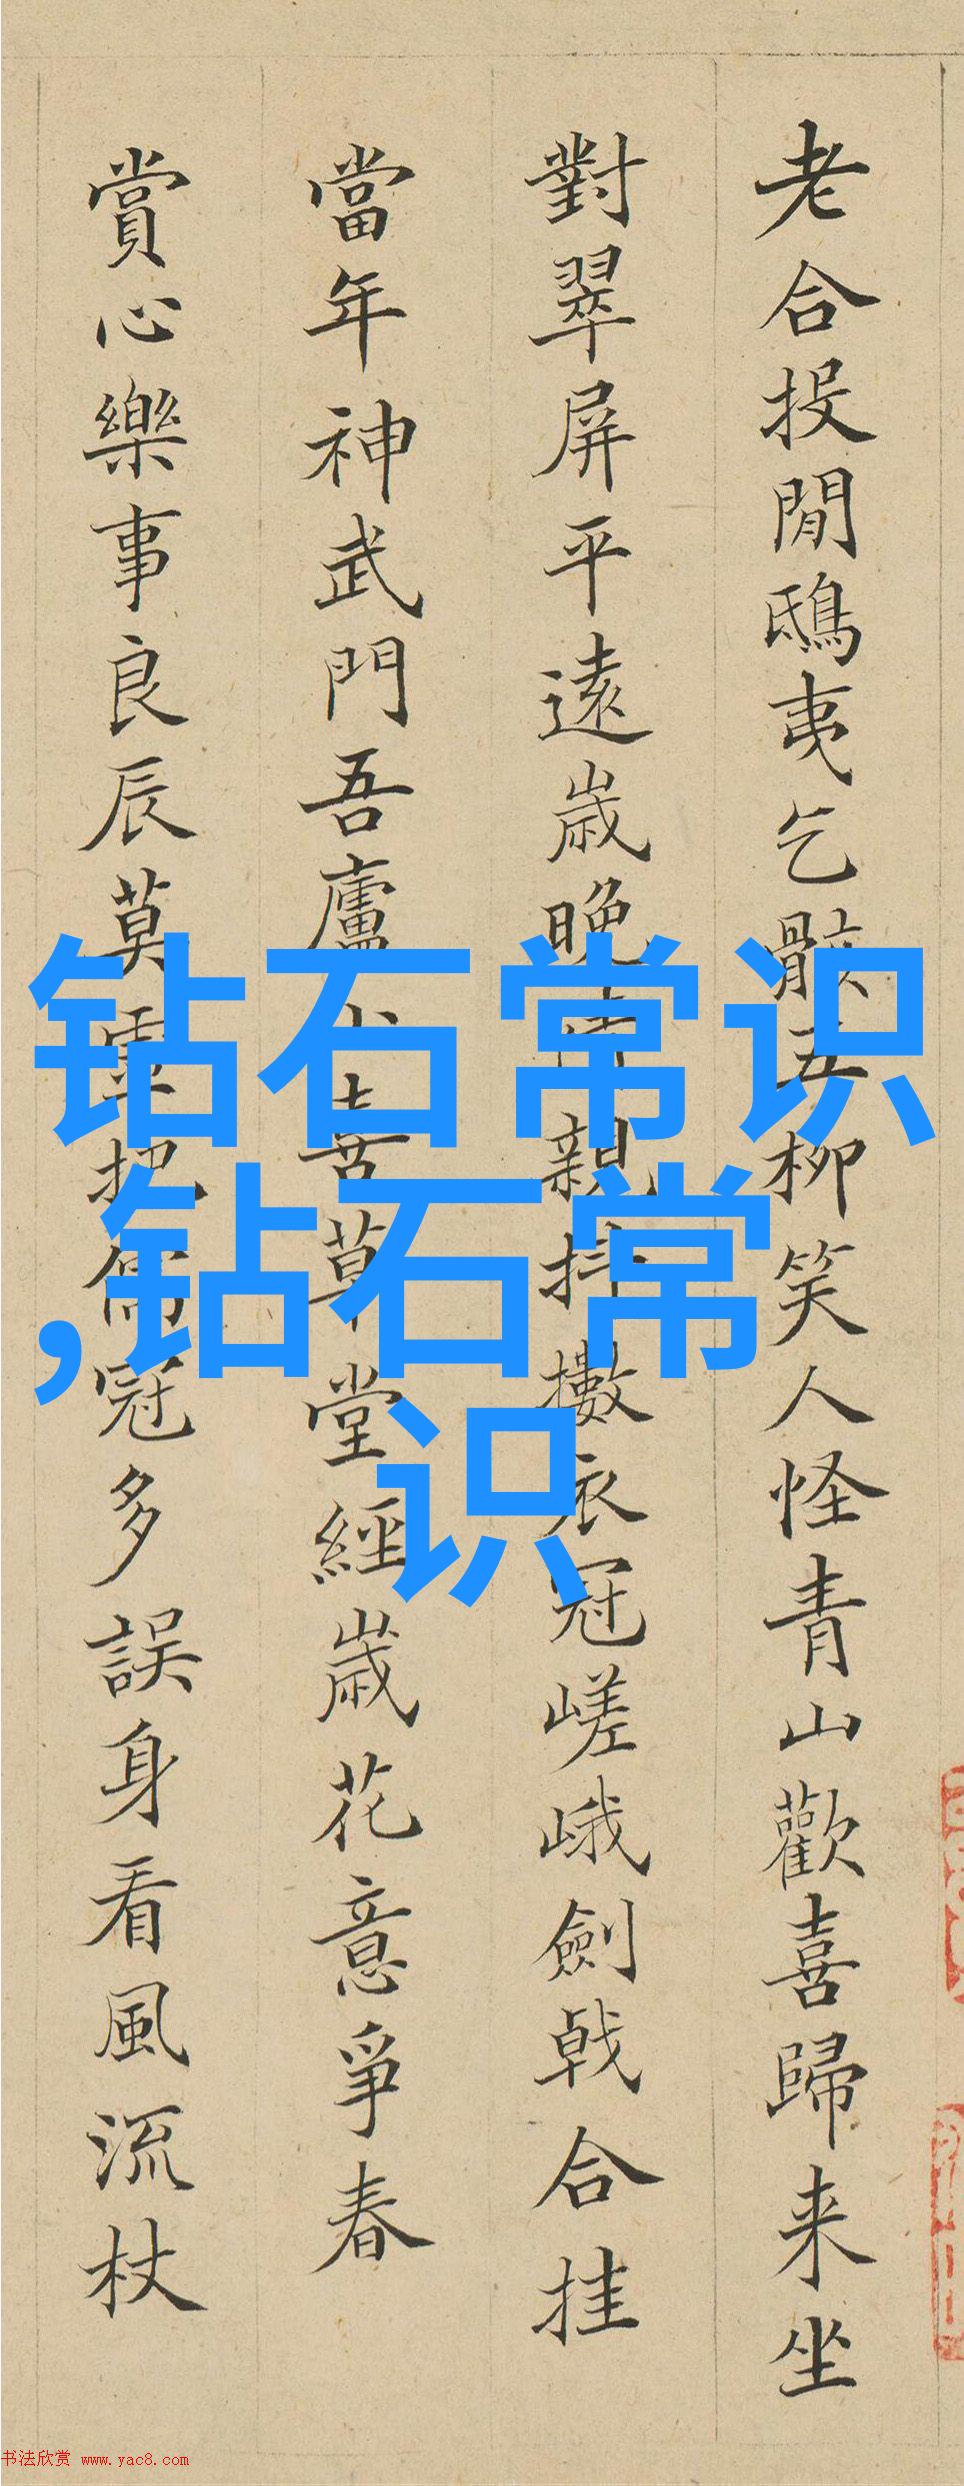 老合投閒鴟夷乞骸五柳笑人怪青山歡喜歸来坐
對翠屏平遠歲晚親抖擻衣冠嵯峨劍戟合挂
當年神武門吾廬小喜草堂經歲花意爭春
賞心樂事良辰莫把儒冠多誤身看風流杖
钻石常识
,钻石常
识
书法欣赏 www.yac8.com